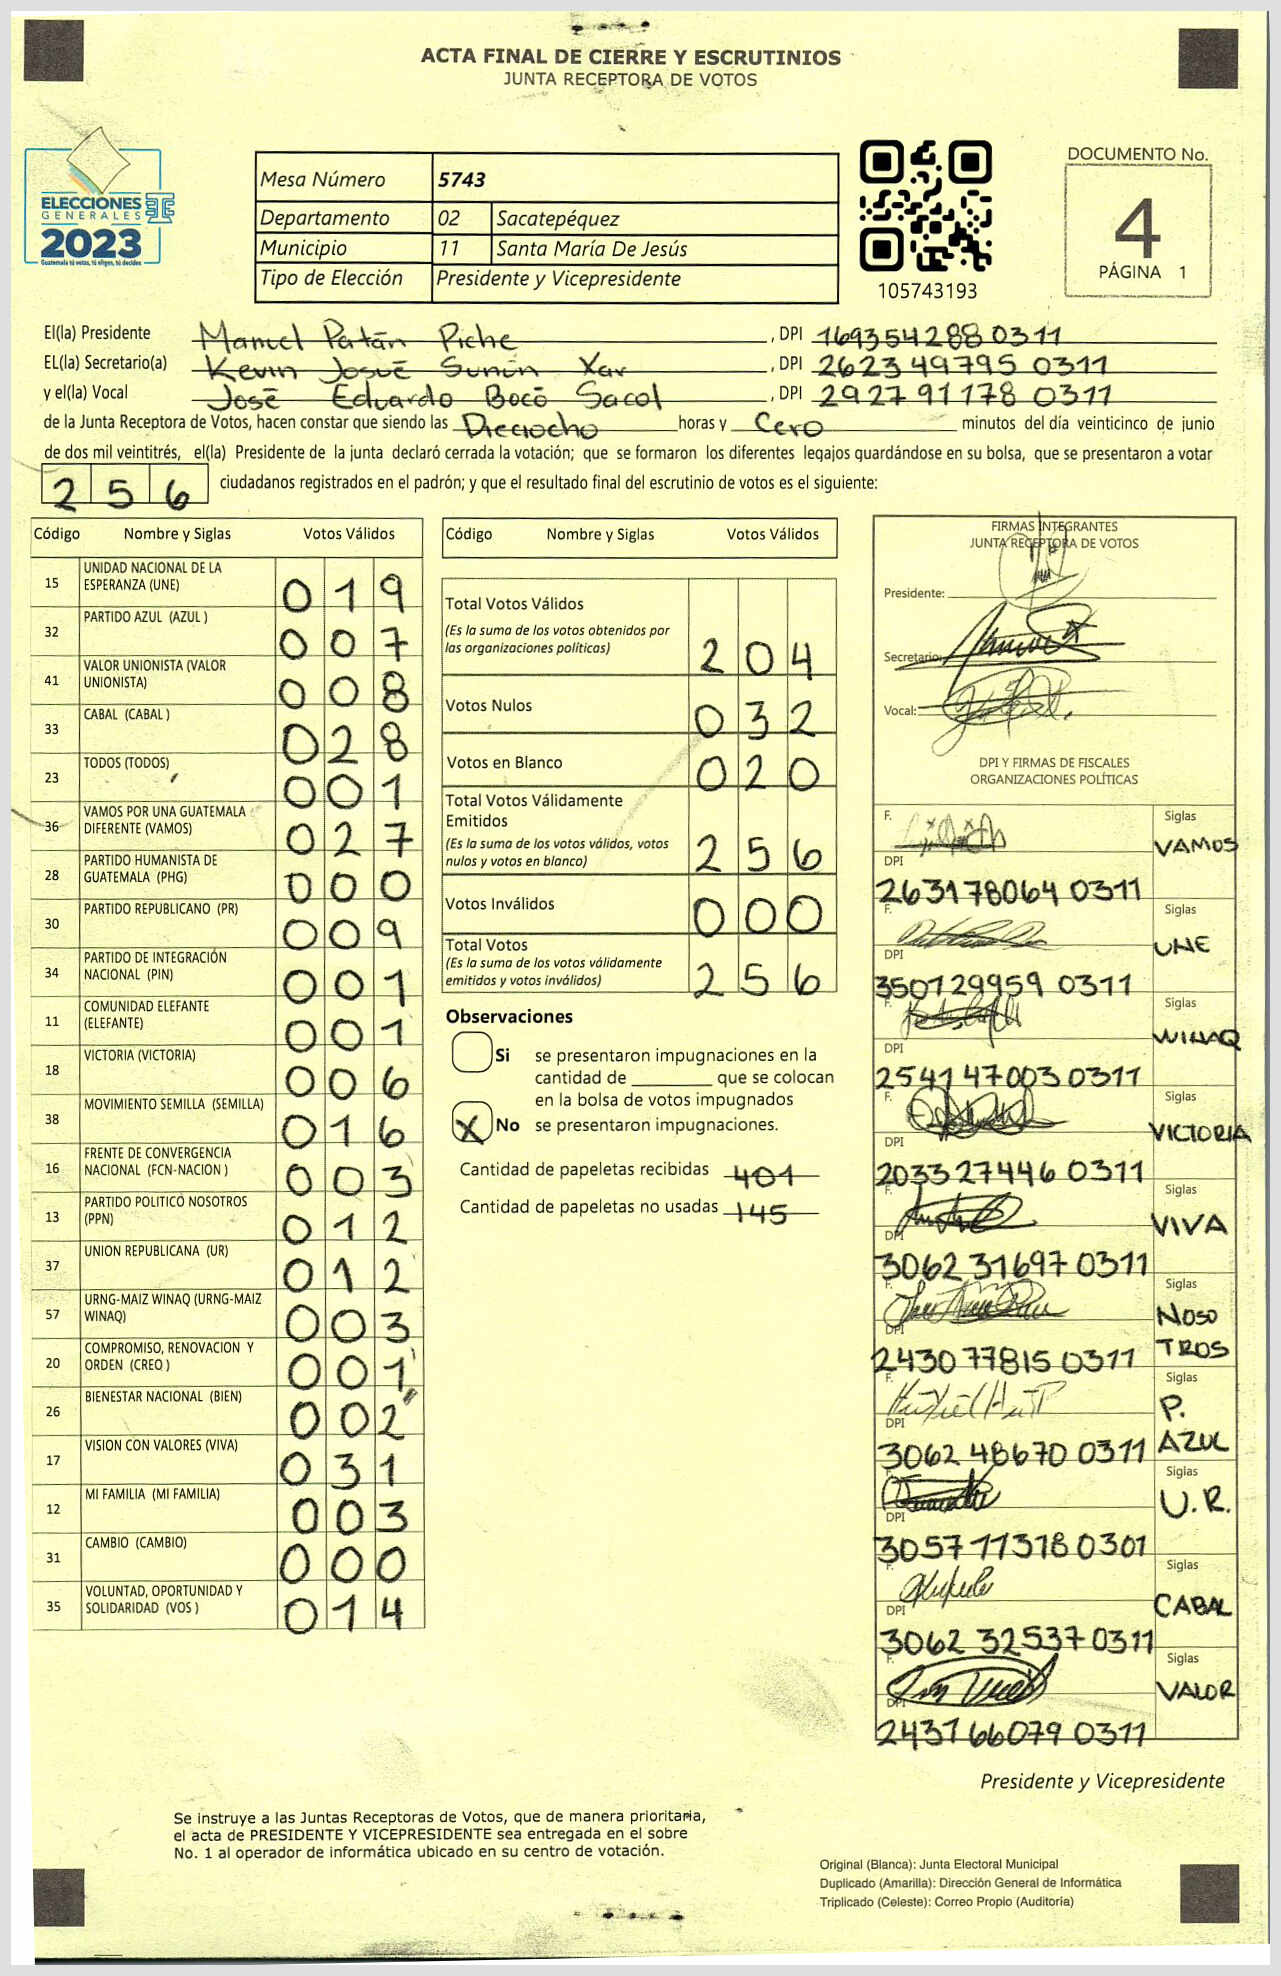 ACTA FINAL DE CIERRE Y ESCRUTINIOS
JUNTA RECEPTORA DE VOTOS
ELECCIONES
GENERALES
2023
Guatemala tú votas, tú eliges, tú decides
Mesa Número 5743
Departamento 02 Sacatepéquez
Municipio 11 Santa María De Jesús
Tipo de Elección Presidente y Vicepresidente
105743193
DOCUMENTO No.
4
PÁGINA 1
El(la) Presidente Manuel Patán Piche , DPI 169354288 0311
EL(la) Secretario(a) Kevin Josué Sunún Xar , DPI 2623 49795 0311
y el(la) Vocal José Eduardo Bocó Sacol , DPI 2927 91178 0311
de la Junta Receptora de Votos, hacen constar que siendo las Dieciocho horas y Cero minutos del día veinticinco de junio
de dos mil veintitrés, el(la) Presidente de la junta declaró cerrada la votación; que se formaron los diferentes legajos guardándose en su bolsa, que se presentaron a votar
256 ciudadanos registrados en el padrón; y que el resultado final del escrutinio de votos es el siguiente:
Código Nombre y Siglas Votos Válidos
15 UNIDAD NACIONAL DE LA
ESPERANZA (UNE) 019
32 PARTIDO AZUL (AZUL ) 007
41 VALOR UNIONISTA (VALOR
UNIONISTA) 008
33 CABAL (CABAL ) 028
23 TODOS (TODOS) 001
36 VAMOS POR UNA GUATEMALA
DIFERENTE (VAMOS) 027
28 PARTIDO HUMANISTA DE
GUATEMALA (PHG) 000
30 PARTIDO REPUBLICANO (PR) 009
34 PARTIDO DE INTEGRACIÓN
NACIONAL (PIN) 001
11 COMUNIDAD ELEFANTE
(ELEFANTE) 001
18 VICTORIA (VICTORIA) 006
38 MOVIMIENTO SEMILLA (SEMILLA) 016
16 FRENTE DE CONVERGENCIA
NACIONAL (FCN-NACION ) 003
13 PARTIDO POLITICO NOSOTROS
(PPN) 012
37 UNION REPUBLICANA (UR) 012
57 URNG-MAIZ WINAQ (URNG-MAIZ
WINAQ) 003
20 COMPROMISO, RENOVACION Y
ORDEN (CREO ) 001
26 BIENESTAR NACIONAL (BIEN) 002
17 VISION CON VALORES (VIVA) 031
12 MI FAMILIA (MI FAMILIA) 003
31 CAMBIO (CAMBIO) 000
35 VOLUNTAD, OPORTUNIDAD Y
SOLIDARIDAD (VOS ) 014
Código Nombre y Siglas Votos Válidos
Total Votos Válidos
(Es la suma de los votos obtenidos por
las organizaciones políticas) 204
Votos Nulos 032
Votos en Blanco 020
Total Votos Válidamente
Emitidos
(Es la suma de los votos válidos, votos
nulos y votos en blanco) 256
Votos Inválidos 000
Total Votos
(Es la suma de los votos válidamente
emitidos y votos inválidos) 256
Observaciones
Si se presentaron impugnaciones en la
cantidad de ________ que se colocan
en la bolsa de votos impugnados
X No se presentaron impugnaciones.
Cantidad de papeletas recibidas 401
Cantidad de papeletas no usadas 145
FIRMAS INTEGRANTES
JUNTA RECEPTORA DE VOTOS
Presidente:
Secretario:
Vocal:
DPI Y FIRMAS DE FISCALES
ORGANIZACIONES POLÍTICAS
F. Siglas
VAMOS
DPI
263178064 0311
F. Siglas
UNE
DPI
350129959 0311
F. Siglas
WINAQ
DPI
2541 47003 0311
F. Siglas
VICTORIA
DPI
2033 27446 0311
F. Siglas
VIVA
DPI
3062 31697 0311
F. Siglas
NOSO
TROS
DPI
2430 77815 0311
F. Siglas
P.
AZUL
DPI
3062 48670 0311
F. Siglas
U.R.
DPI
3057 113180301
F. Siglas
CABAL
DPI
3062 32537 0311
F. Siglas
VALOR
DPI
2437 66079 0311
Presidente y Vicepresidente
Se instruye a las Juntas Receptoras de Votos, que de manera prioritaria,
el acta de PRESIDENTE Y VICEPRESIDENTE sea entregada en el sobre
No. 1 al operador de informática ubicado en su centro de votación.
Original (Blanca): Junta Electoral Municipal
Duplicado (Amarilla): Dirección General de Informática
Triplicado (Celeste): Correo Propio (Auditoría)